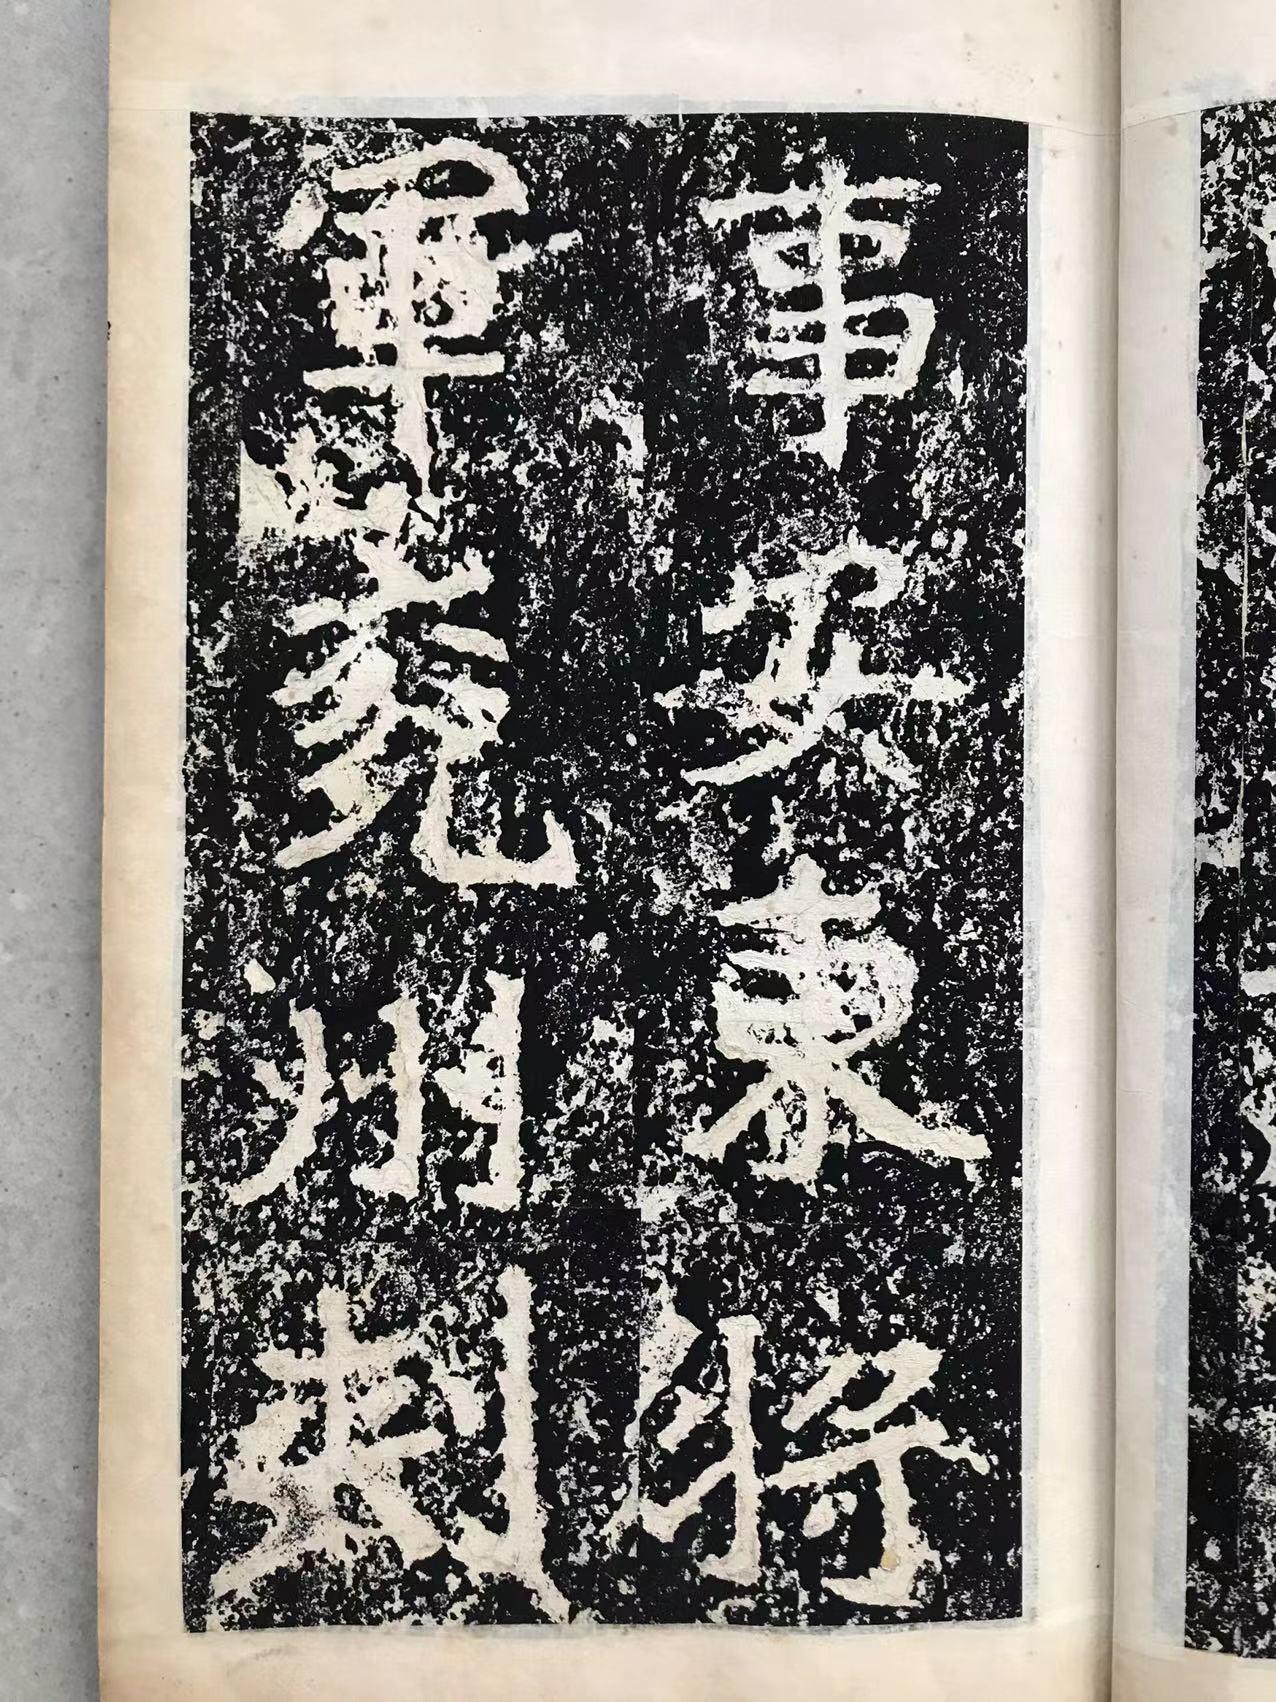 事安東將
軍兗州刺